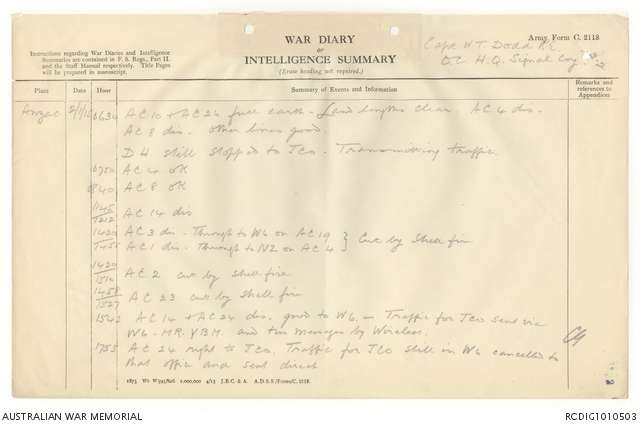 WAR DIARY
or
INTELLIGENCE SUMMARY
(Erase heading not required.)
Army Form C. 2118
Instructions regarding War Diaries and Intelligence
Summaries are contained in F. S. Regs., Part II.
and the Staff Manual respectively. Title Pages
will be prepared in manuscript.
Capt W T Dodd R.E.
OC H.Q. Signal Coy.
Place Date Hour Summary of Events and Information Remarks and references to Appendices
Anzac 0630 AC 10 + AC 24 full earth - clear. AC 4 dis.
AC 8 dis. Other lines good
D 4 still stopped to JCo. Transmitting traffic
0700 AC 4 OK
0840 AC 8 OK
1145
1212 AC 14 dis
1420
1455 AC 3 dis - Through to W6 on AC 19
AC 1 dis - Through to N2 on AC 4 } Cut by Shell fire
1420
1510 AC 2 cut by shell fire
1458
1527 AC 23 cut by shell fire
1542 AC 14 + AC 24 dis. good to W6 - Traffic for JCo sent via
W6 - MR. YBM. and two messages by Wireless.
1755 AC 24 right to JCo. Traffic for JCo still in W6 cancelled to
that office and sent direct
1875 Wt. W593/826 1,000,000 4/15 J.B.C. & A. A.D.S.S./Forms/C. 2118.
AUSTRALIAN WAR MEMORIAL
RCDIG1010503